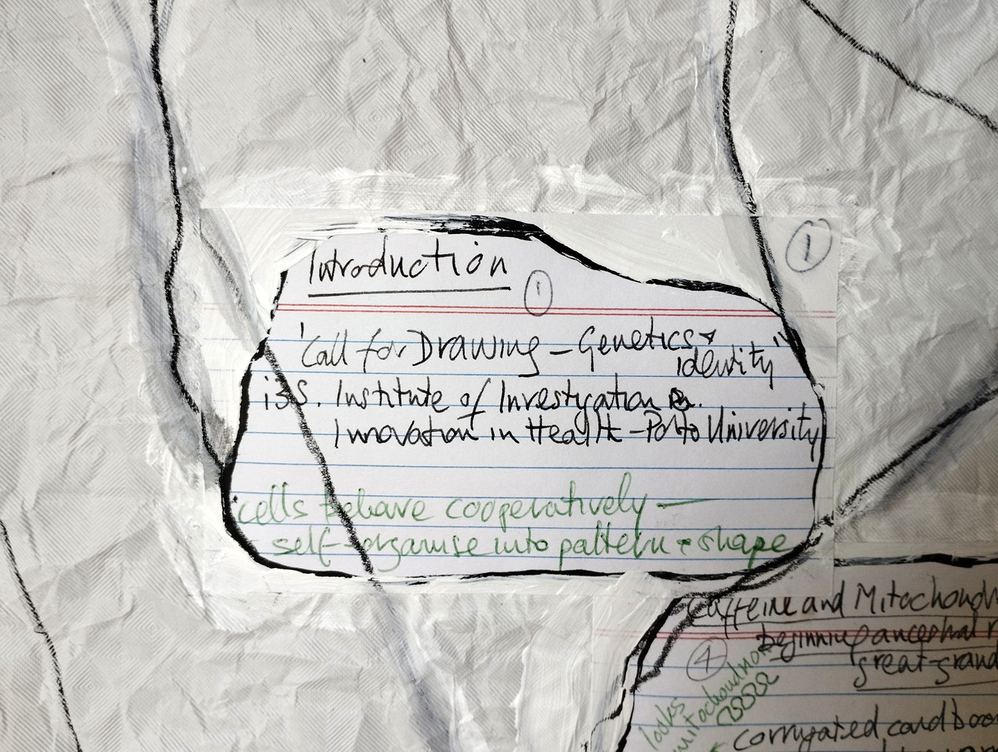 Introduction
1
1
'Call for Drawing - Genetics +
identity"
i3S. Institute of Investigation &.
Innovation in Health - Porto University
cells behave cooperatively —
self-organise into pattern + shape
Caffeine and
beginning
4
great-grand
looks
corrugated